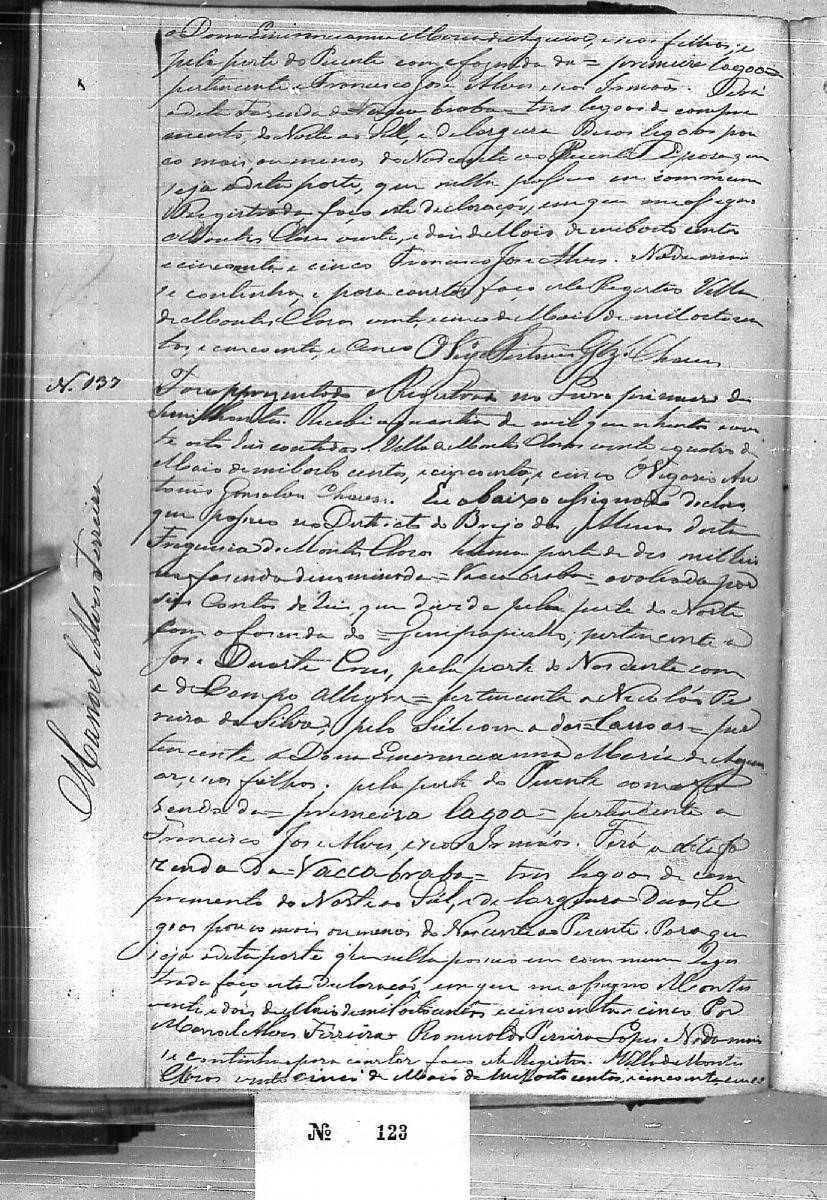 a Dona Emerenciana Maria de Aguiar, e seos filhos, e
pela parte do Puente com a fazenda da = primeira lagoa =
pertencente a Francisco José Alves e seos Irmaõs. Terá
a dita Fazenda da Vacca braba = tres legoas de compri
mento, do Norte ao Sul, e de largura Duas legoas pou
co mais, ou menos do Nascente ao Puente. E para que
seja a dita parte, que nella possuo em commum
Registrada faço esta declaração, em que me assigno
Montes Claros vinte, e dois de Maio de mil oito centos
e cincoenta e cinco Francisco José Alves. Nada mais
se continha, e para constar faço este Registro Villa
de Montes Claros vinte, e cinco de Maio de mil oito cen
tos, e cincoenta, e cinco O Vigº Antonio Glz. Chaves
N. 137
Manoel Alves Ferreira
Foi apprezentado e Registrado no Livro primeiro de
Simithante. Recebi a quantia de mil quinhentos e vin
te oito reis contados. Villa de Montes Claros vinte e quatro de
Maio de mil oito centos, e cincoenta, e cinco O Vigario An
tonio Gonsalves Chaves. Eu abaixo assignado declaro
que possuo no Districto do Brejo das Almas desta
Freguesia de Montes Claros huma parte de des mil reis
na fazenda denominada = Vacca braba = avaliada por
seis Contos de reis, que divide pela parte do Norte
com a fazenda do = Genipapinho, pertencente a
José Duarte Cruz, pela parte do Nascente com
a do Campo Alegre = pertencente a Nicoláo Pe
reira da Silva, pelo Sul com a das = Lavras = per
tencente a Dona Emerenciana Maria de Agui
ar, e seos filhos; pela parte do Puente com a fa
zenda da = primeira lagoa = pertencente a
Francisco José Alves, e seos Irmaõs. Terá a dita fa
zenda da = Vacca braba = tres legoas de com
primento do Norte ao Sul, e de largura Duas le
goas pouco mais ou menos do Nascente ao Puente. Para que
seja a dita parte que nella possuo em commum Regis
trada faço esta declaração, em que me assigno Montes
vinte e dois de Maio de mil oito centos e cincoenta e cinco Por
Manoel Alves Ferreira Romualdo Ferreira Lopes Nada mais
se continha e para constar faço este Registro. Villa de Montes
Claros vinte cinco de Maio de mil oito centos, e cincoenta e cinco
Nº 123